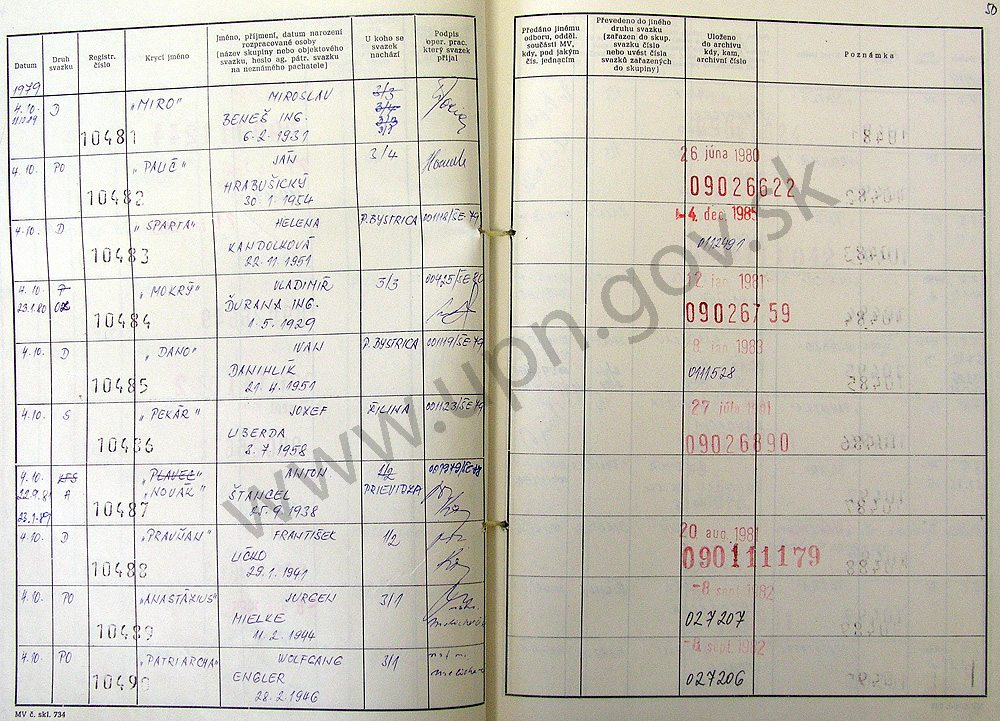 50
Datum
Druh svazku
Registr. číslo
Krycí jméno
Jméno, příjmení, datum narození
rozpracované osoby
(název skupiny nebo objektového
svazku, heslo ag. pátr. svazku
na neznámého pachatele)
U koho se
svazek
nachází
Podpis
oper. prac.
který svazek
přijal
Předáno jinému
odboru, odděl.
součásti MV,
kdy, pod jakým
čís. jednacím
Převedeno do jiného
druhu svazku
(zařazen do skup.
svazku číslo
nebo uvést číslo
svazků zařazených
do skupiny)
Uloženo
do archivu
kdy, kam,
archivní číslo
Poznámka
1979
4.10. D 10481 „MIRO" MIROSLAV
BENEŠ ING.
6.2.1931
4.10. PO 10482 JÁN 3/4
HRABUŠICKÝ
30.1.1954
26 júna 1980
09026622
4.10. D 10483 „SPARTA" HELENA P.BYSTRICA
KANDOLKOVÁ
22.11.1951
4. dec. 1985
0112491
4.10. 10484 „MOKRÝ" VLADIMÍR 3/3
23.1.80 ĎURANA ING.
1.5.1929
12 jan 1981
09026759
4.10. D 10485 „DANO" IVAN P.BYSTRICA 00119/ŠE 79
DANIHLÍK
21.4.1951
8. jan 1983
0111528
4.10. S 10486 „PEKÁR" JOZEF ŽILINA 001123/ŠE 79
LIBERDA
8.7.1958
27 júla 1981
09026890
4.10. 10487 „PLAVEC" ANTON 1/2
A „NOVÁK" ŠTANCEL PRIEVIDZA
25.9.1938
4.10. D 10488 „PRAVŇAN" FRANTIŠEK 1/2
LIČKO
29.1.1941
20 aug. 1981
090111179
4.10. PO 10489 „ANASTÁZIUS" JURGEN 3/1
MIELKE
11.2.1944
-8 sept. 1982
027207
4.10. PO 10490 „PATRIARCHA" WOLFGANG 3/1
ENGLER
28.2.1946
-8 sept. 1982
027206
MV č. skl. 734
www.upn.gov.sk